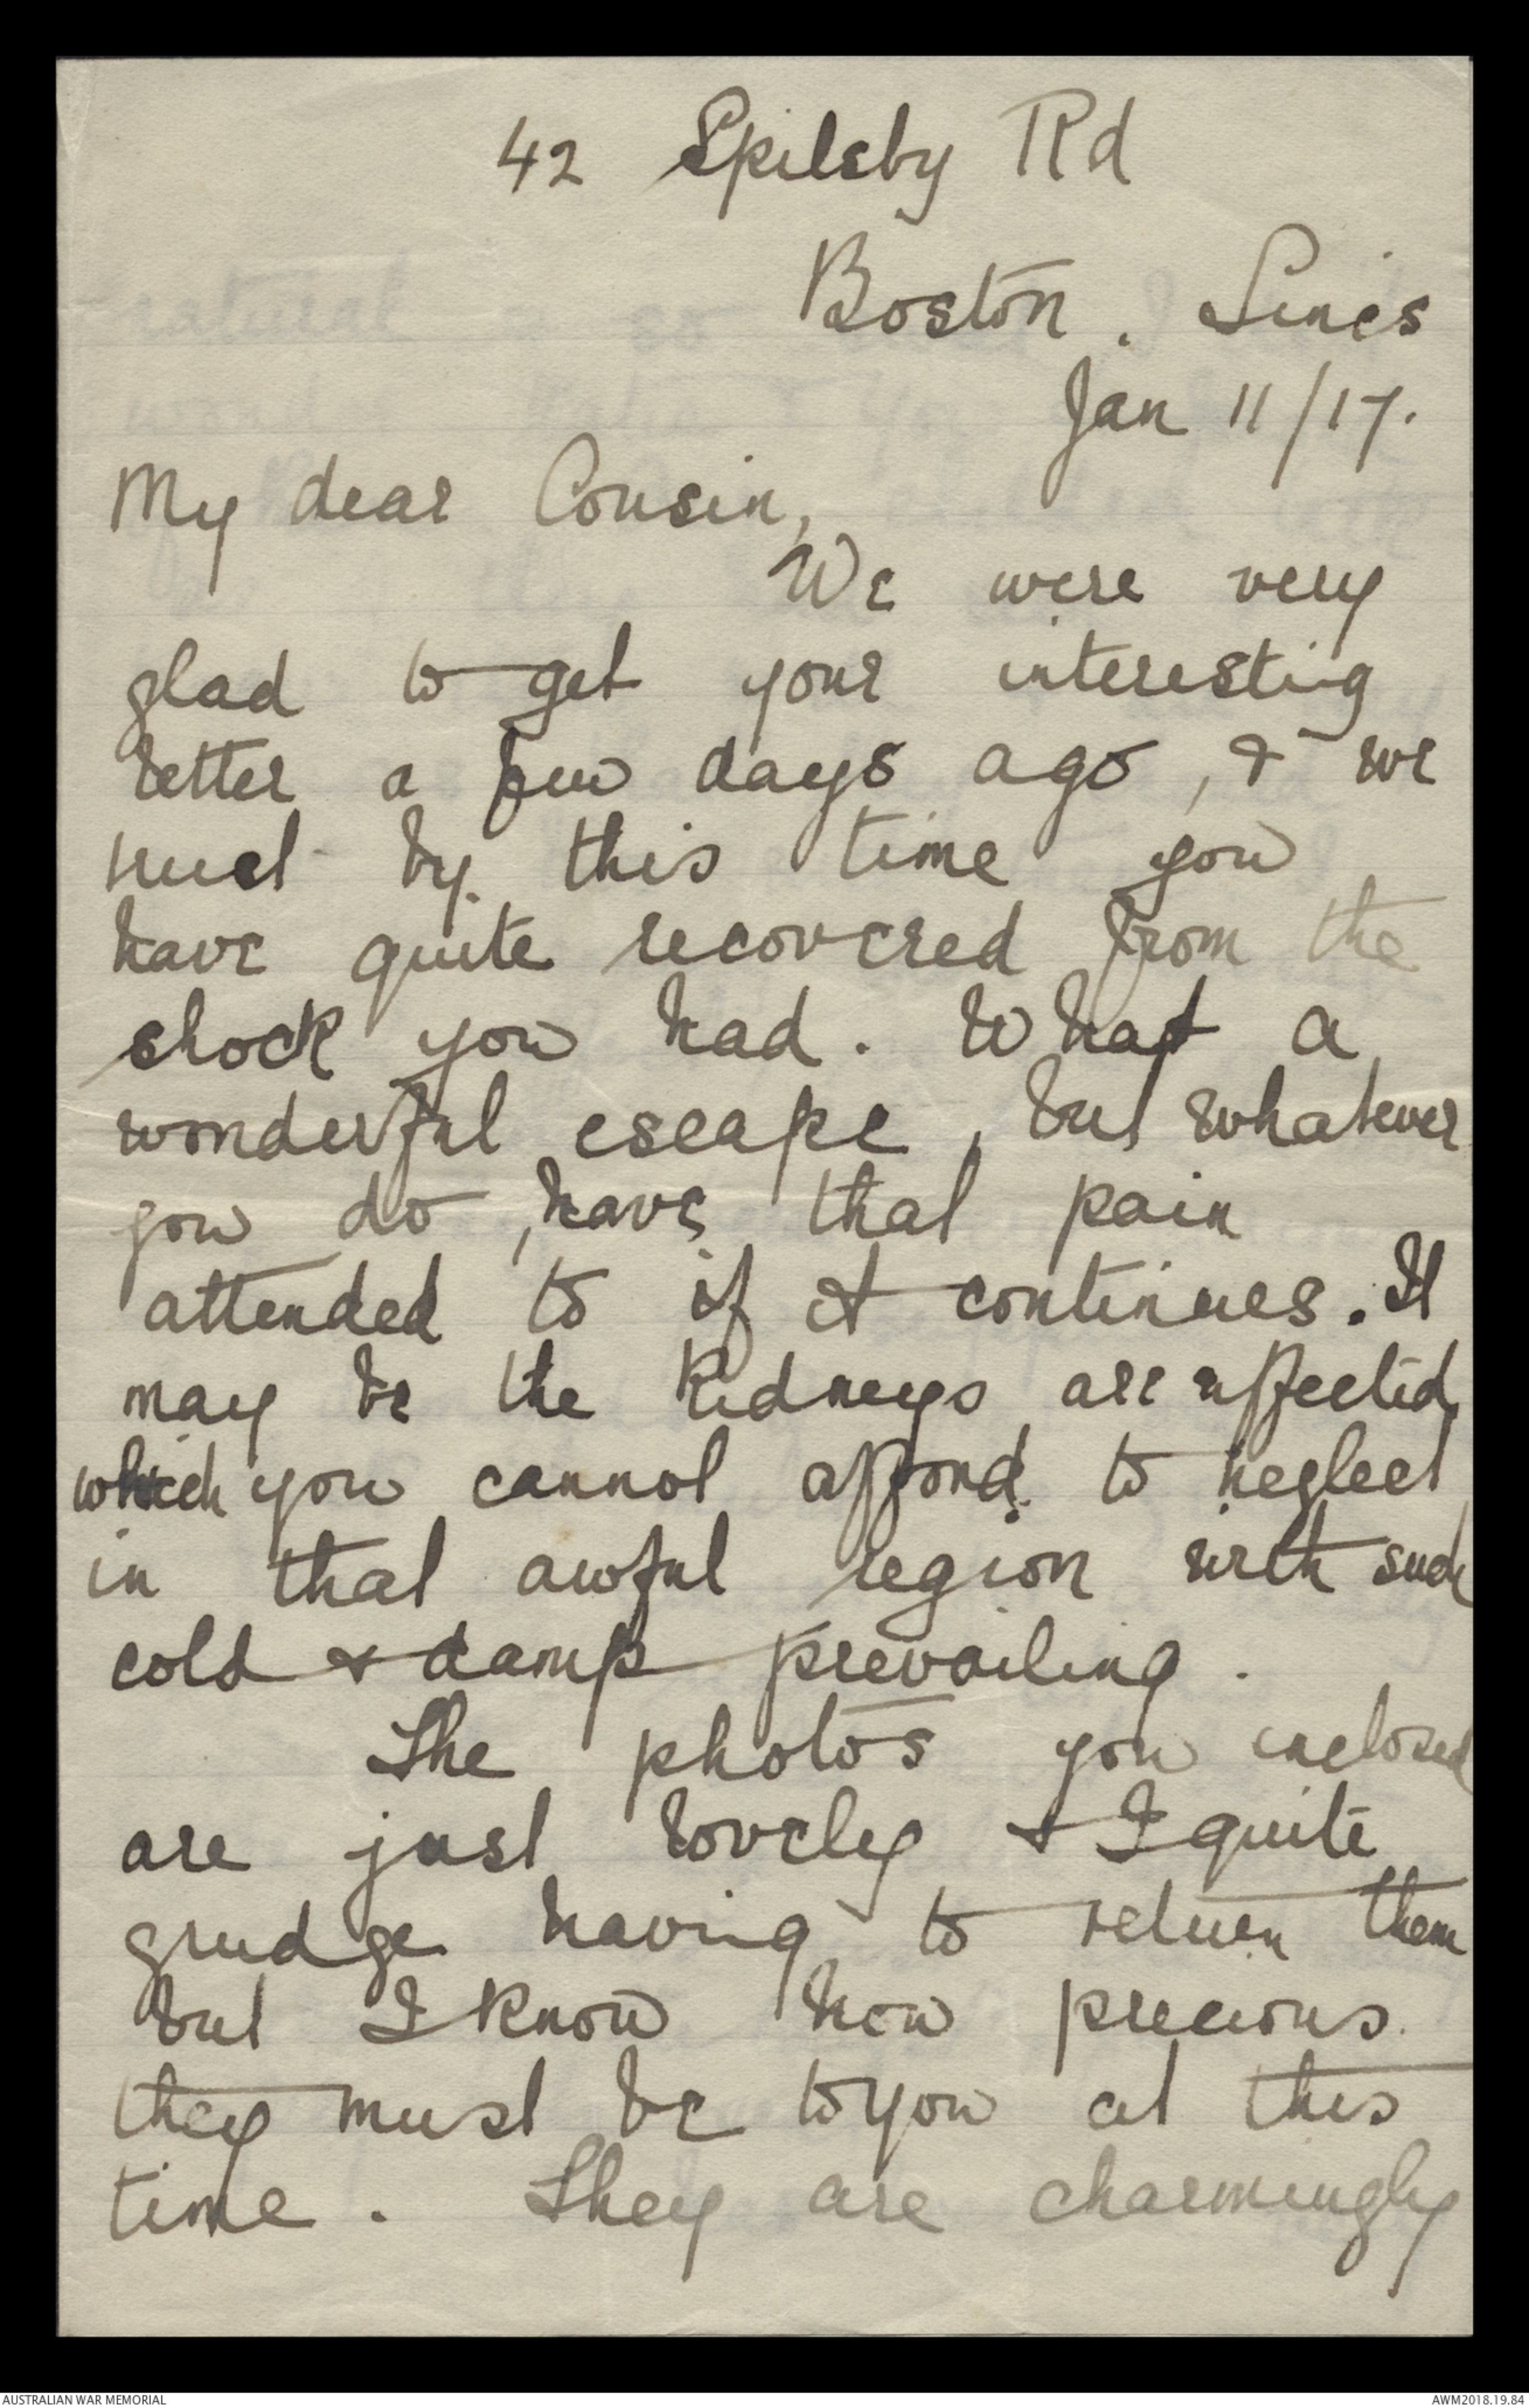 42 Spilsby Rd
Boston. Lincs
Jan 11/17.
My dear Cousin,
We were very
glad to get your interesting
letter a few days ago, & we
trust by this time you
have quite recovered from the
shock you had. What a
wonderful escape, but whatever
you do, have that pain
attended to if it continues. It
may be the kidneys are affected,
which you cannot afford to neglect
in that awful region with such
cold & damp prevailing.
The photos you inclosed
are just lovely & I quite
grudge having to return them
but I know how precious
they must be to you at this
time. They are charmingly
AUSTRALIAN WAR MEMORIAL
AWM2018.19.84